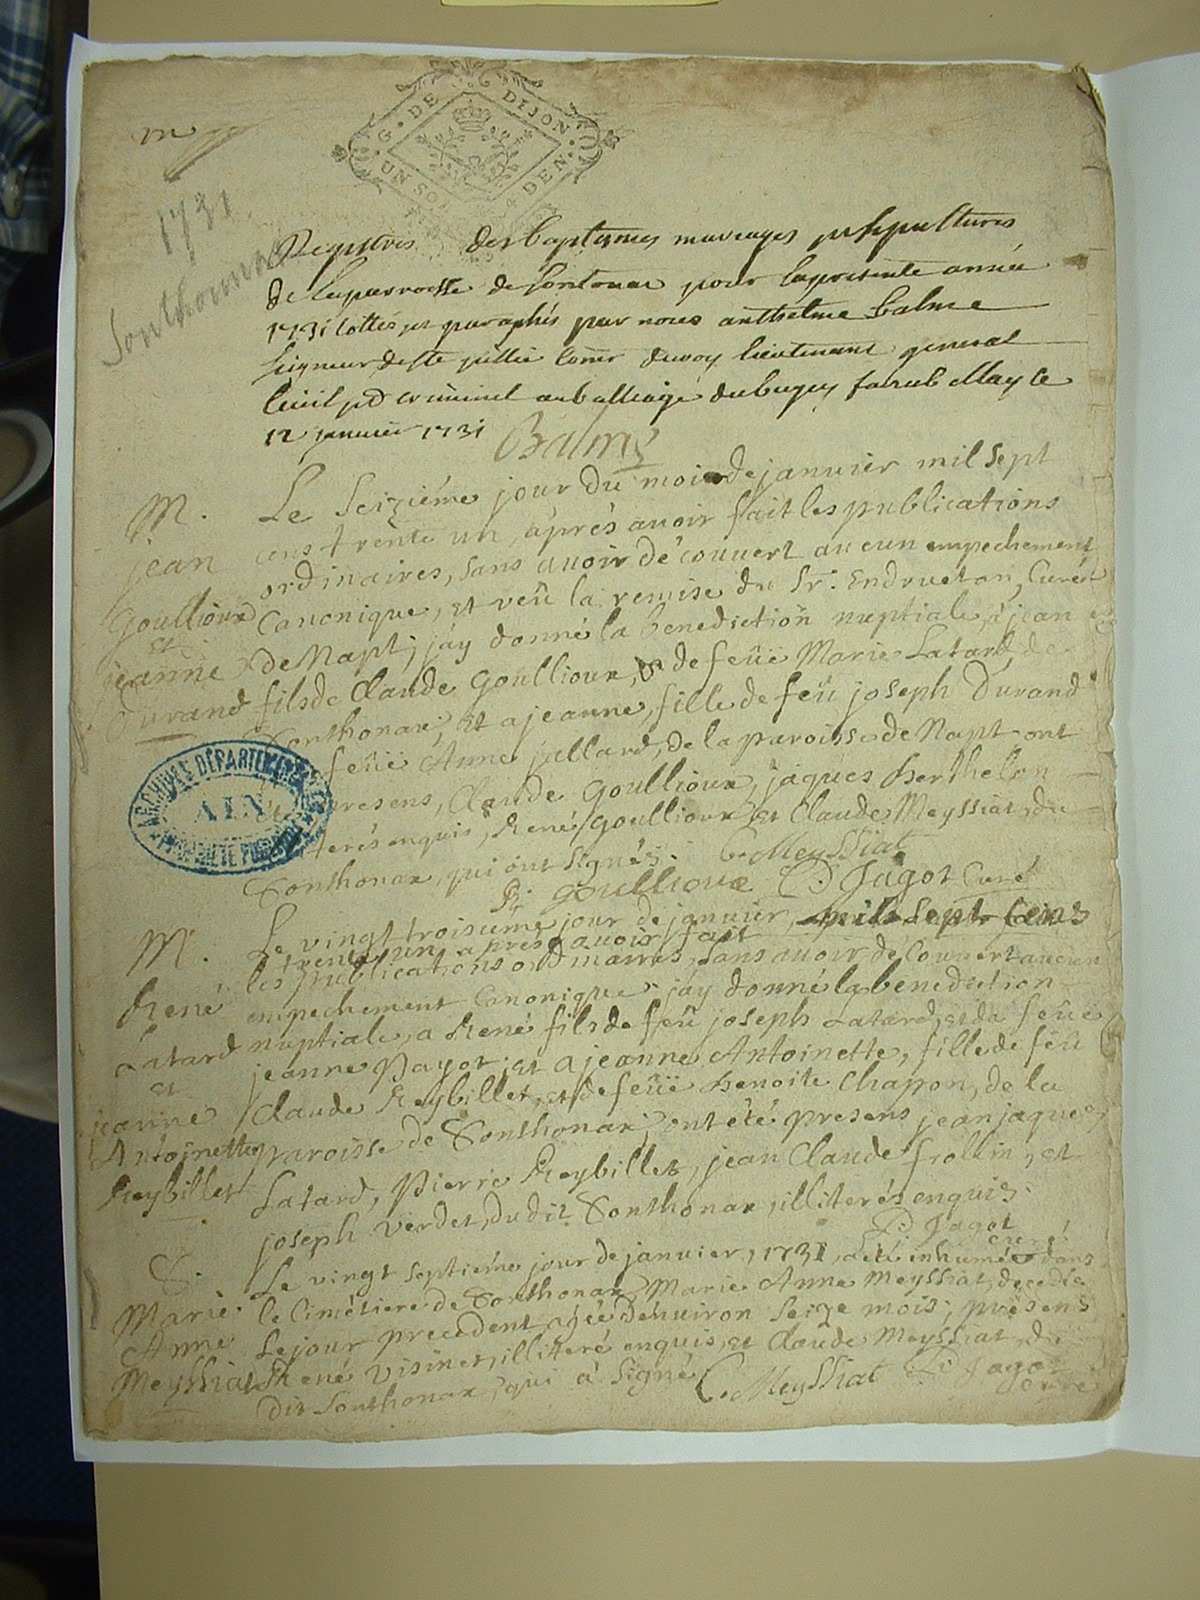 G. DE DIJON
UN SOL DEN.
1731
Sonthonnax
Registres des baptesmes mariages et sepultures
de la parroisse de Sontonax pour la presente année
1731 cottés et paraphés par nous anthelme balme
seigneur de ste jullie lieutenant general
Civil et criminel au balliage du bugey le
12 janvier 1731 Balme
M.
jean
Goullioux
et
jeanne
Durand
Le seiziéme jour du mois de janvier mil sept
cens trente un, aprés avoir fait les publications
ordinaires, sans avoir découvert aucun empechement
Canonique, et veü la remise du Sr. Endrueton, Curé
de Napt, j'ay donné la benediction nuptiale, à jean
fils de Claude Goullioux, & de feüe Marie Latard, de
Sonthonax; et a jeanne, fille de feü joseph Durand
feüe Anne jullard, de la paroisse de Napt ont
presens, Claude Goullioux, jaques berthelon
terés enquis, René Goullioux et Claude Meyssiat, du
Sonthonax, qui ont signés. C. Meyssiat
R. goullioux D. Jagot Curé
ARCHIVES DÉPARTEMENTALES
AIN
PROPRIÉTÉ PUBLIQUE
M.
René
Latard
et
jeanne
Antoinette
Reybillet
Le vingt troisiéme jour de janvier, mil sept cens
trente un, aprés avoir fait
les publications ordinaires, sans avoir découvert aucun
empechement Canonique. j'ay donné la benediction
nuptiale, a René fils de feü joseph Latard, et de feüe
jeanne Payot; et a jeanne Antoinette, fille de feü
Claude Reybillet, et de feüe benoite Chapon, de la
paroisse de Sonthonax; ont été presens jean jaques
Latard, Pierre Reybillet, jean Claude frollin, et
joseph Verdet, du dit Sonthonax, illiterés enquis.
D. Jagot
curé
S.
Marie
Anne
Meyssiat
Le vingt septiéme jour de janvier, 1731, a été inhumée dans
le Cimétiere de Sonthonax Marie Anne Meyssiat, decedée
le jour precedent agée d'environ seize mois; présens
René Visinet, illiteré enquis, et Claude Meyssiat, du
dit Sonthonax, qui à signé C. Meyssiat D. Jagot
curé